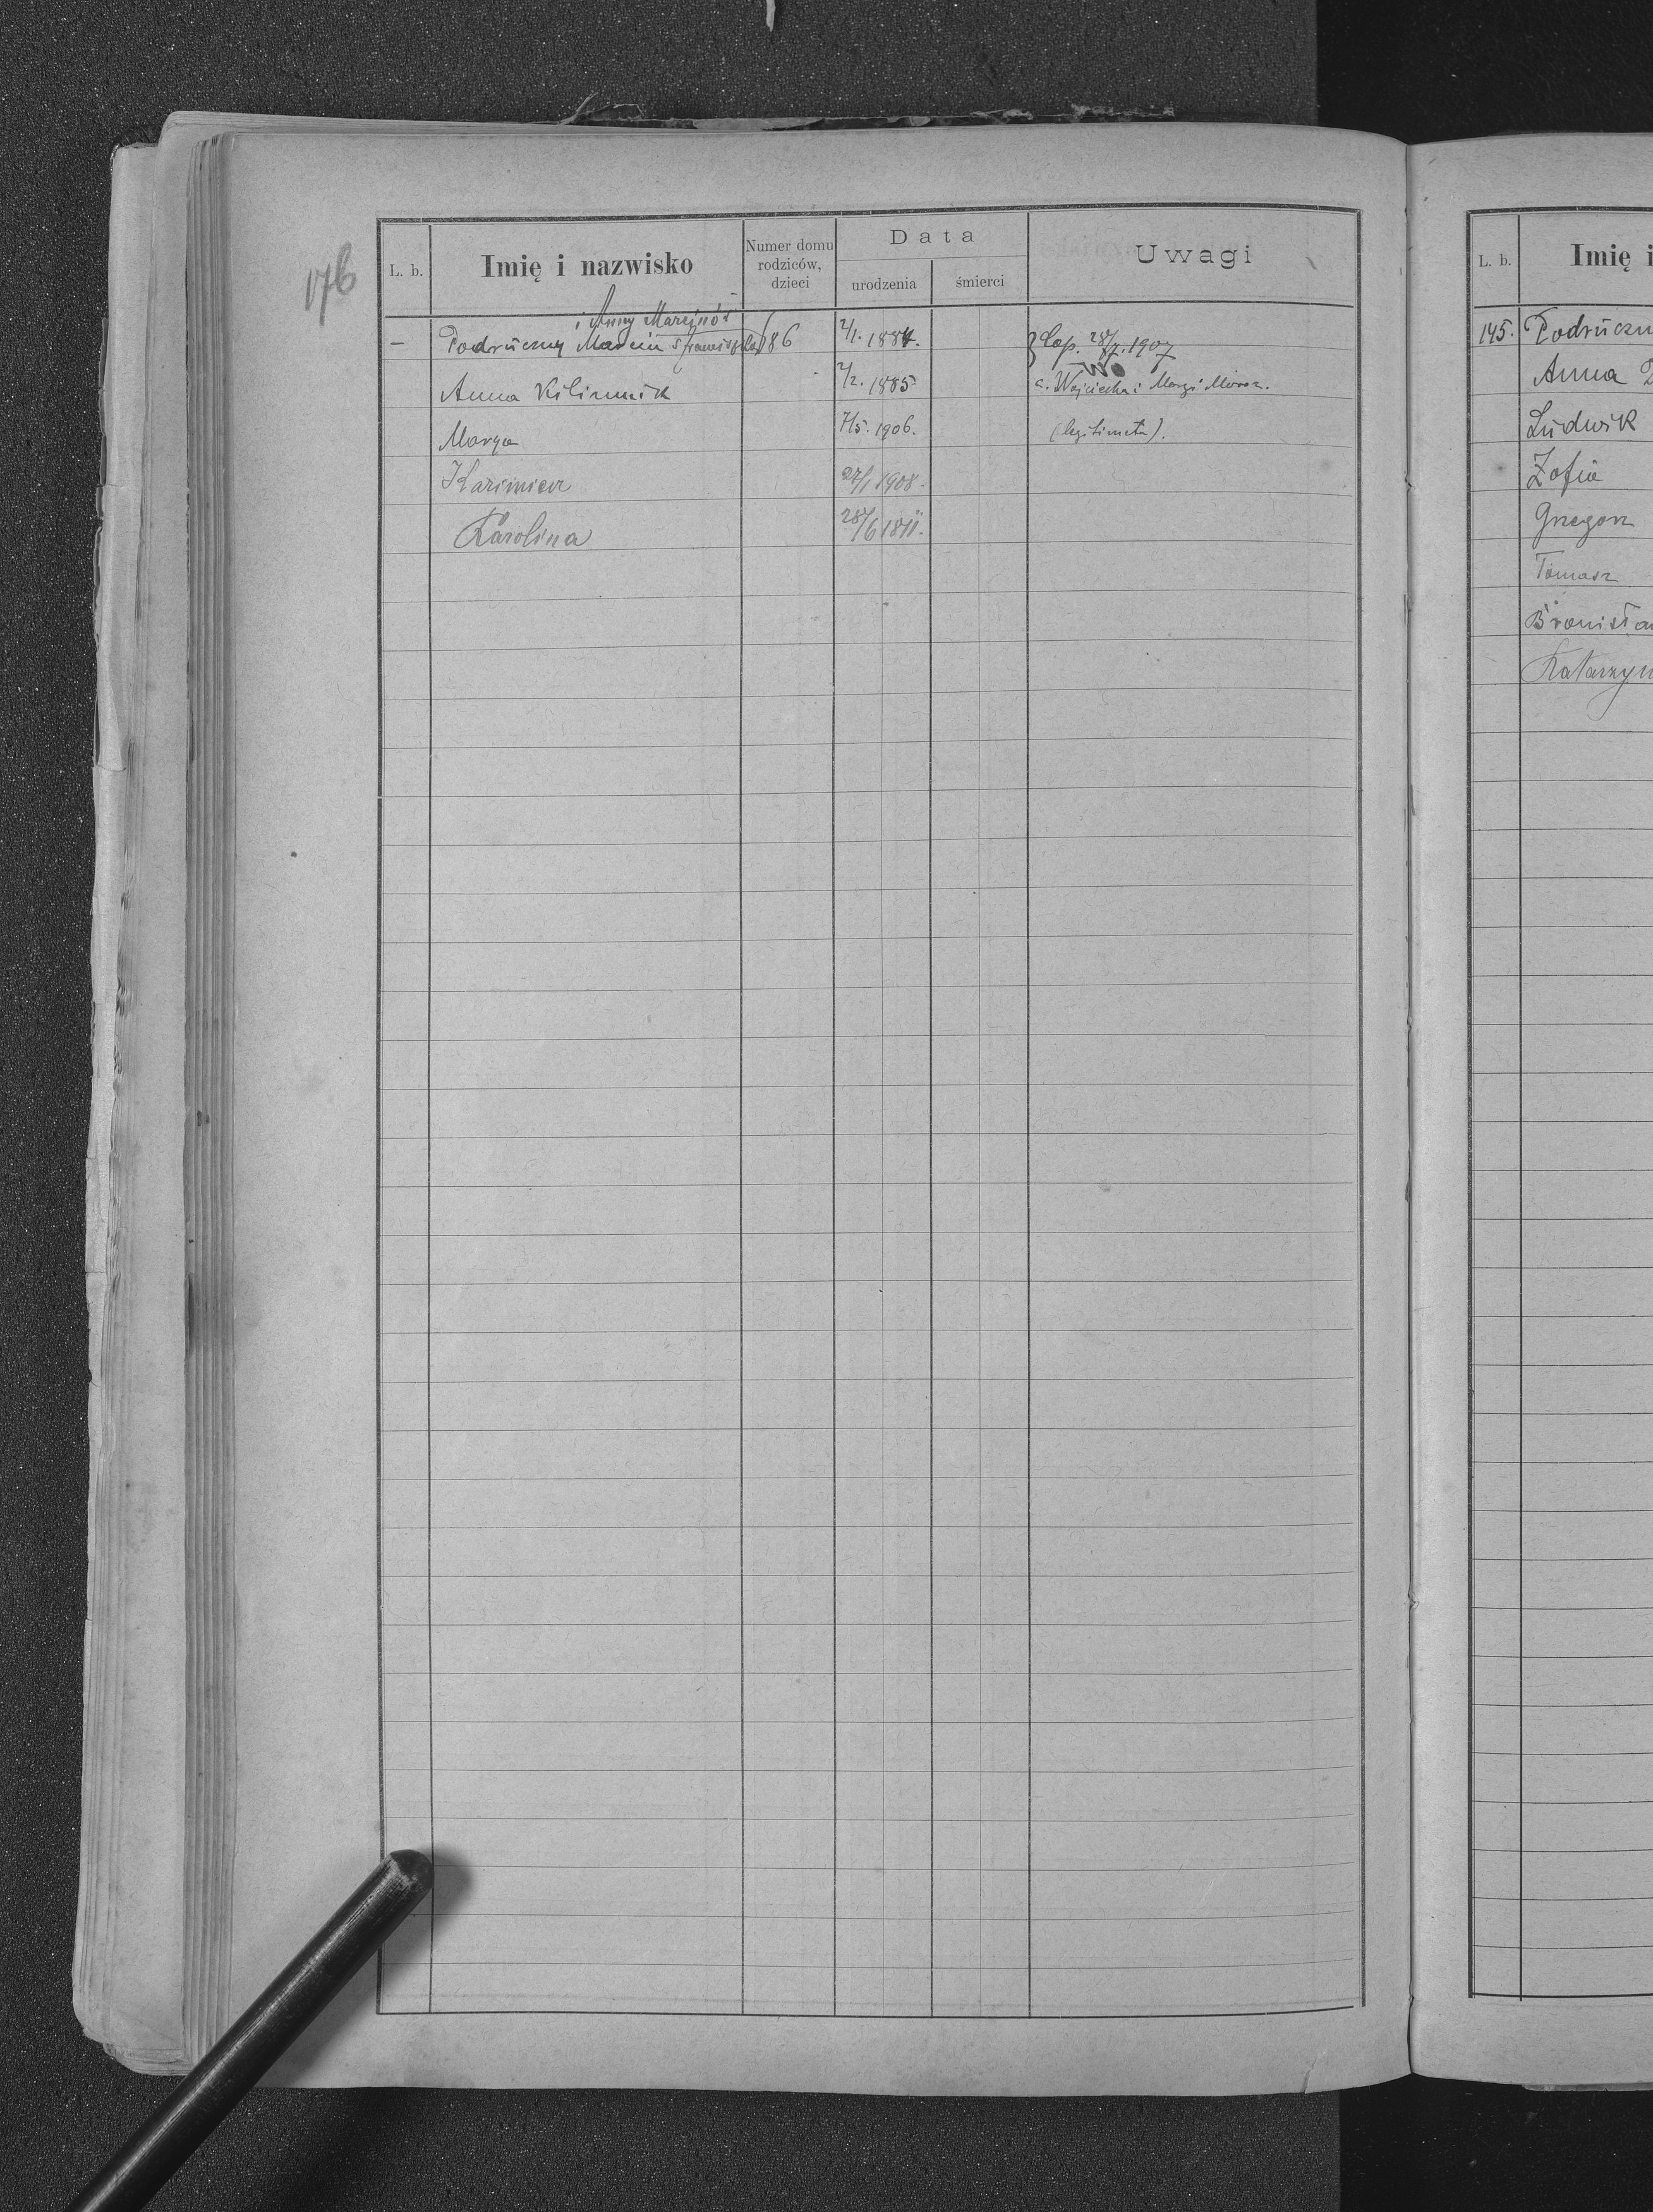 176
L. b.
Imię i nazwisko
Numer domu rodziców, dzieci
Data
urodzenia
śmierci
Uwagi
i Anny Marcinów
— Podruczny Marcin s. Franciszka 86 2/1. 1884. 28/7. 1907
Anna Kilimnik 2/2. 1885 c. Wojciecha i Maryi Mroz.
Marya 7/5. 1906. (legitimata).
Kazimierz 27/1 1908.
Karolina 28/6 1811.
L. b.
Imię i
145. Podruczn
Anna
Ludwik
Zofia
Grzegorz
Tomasz
Bronisła
Katarzyn